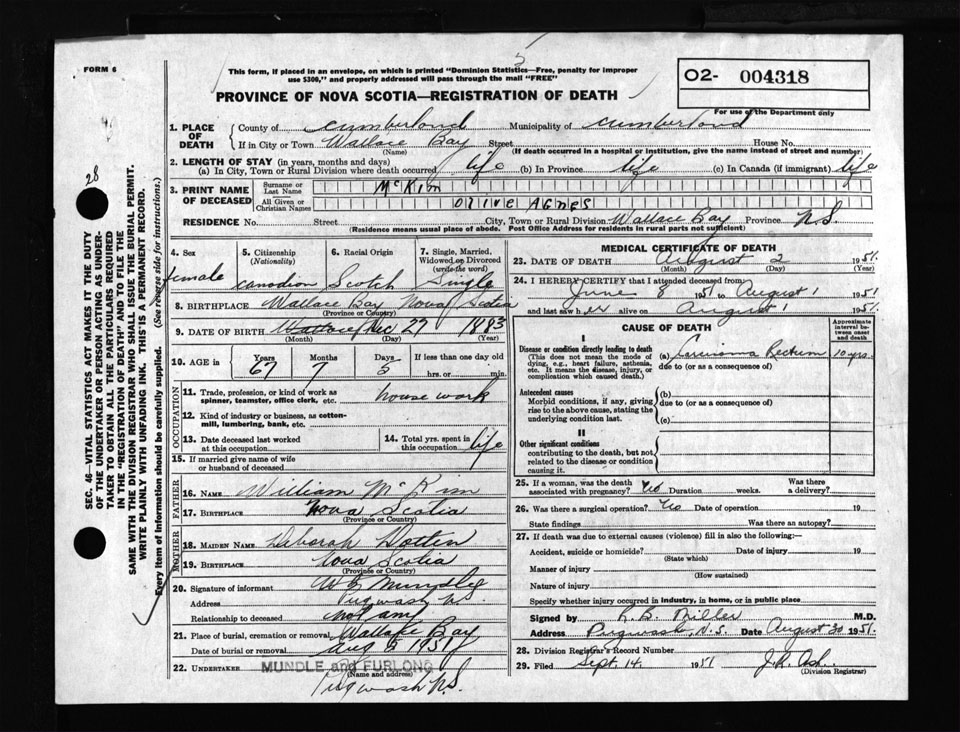 FORM 6
This form, if placed in an envelope, on which is printed "Dominion Statistics—Free, penalty for improper
use $300," and properly addressed will pass through the mail "FREE"
O2- 004318
For use of the Department only
PROVINCE OF NOVA SCOTIA—REGISTRATION OF DEATH
28
SEC. 46—VITAL STATISTICS ACT MAKES IT THE DUTY
OF THE UNDERTAKER OR PERSON ACTING AS UNDER-
TAKER TO OBTAIN ALL THE PARTICULARS REQUIRED
IN THE "REGISTRATION OF DEATH" AND TO FILE THE
SAME WITH THE DIVISION REGISTRAR WHO SHALL ISSUE THE BURIAL PERMIT.
WRITE PLAINLY WITH UNFADING INK. THIS IS A PERMANENT RECORD.
Every item of Information should be carefully supplied. (See reverse side for instructions.)
1. PLACE OF DEATH
County of Cumberland Municipality of Cumberland
If in City or Town Wallace Bay Street House No.
(Name) (If death occurred in a hospital or institution, give the name instead of street and number)
2. LENGTH OF STAY (in years, months and days)
(a) In City, Town or Rural Division where death occurred life (b) In Province life (c) In Canada (if immigrant) life
3. PRINT NAME OF DECEASED
Surname or Last Name McKim
All Given or Christian Names Olive Agnes
RESIDENCE No. Street City, Town or Rural Division Wallace Bay Province N.S.
(Residence means usual place of abode. Post Office Address for residents in rural parts not sufficient)
4. Sex female
5. Citizenship (Nationality) Canadian
6. Racial Origin Scotch
7. Single, Married, Widowed or Divorced (write the word) Single
8. BIRTHPLACE Wallace Bay Nova Scotia
(Province or Country)
9. DATE OF BIRTH Wallace Dec 27 1883
(Month) (Day) (Year)
10. AGE in Years 67 Months 7 Days 5 If less than one day old hrs. or min.
OCCUPATION
11. Trade, profession, or kind of work as spinner, teamster, office clerk, etc. housework
12. Kind of industry or business, as cotton-mill, lumbering, bank, etc.
13. Date deceased last worked at this occupation
14. Total yrs. spent in this occupation life
15. If married give name of wife or husband of deceased
FATHER
16. NAME William McKim
17. BIRTHPLACE Nova Scotia
(Province or Country)
MOTHER
18. MAIDEN NAME Deborah
19. BIRTHPLACE Nova Scotia
(Province or Country)
20. Signature of informant Mundle
Address Pugwash NS.
Relationship to deceased not any
21. Place of burial, cremation or removal Wallace Bay
Date of burial or removal Aug 5 1951
22. UNDERTAKER MUNDLE and FURLONG
(Name and address)
Pugwash NS.
MEDICAL CERTIFICATE OF DEATH
23. DATE OF DEATH August 2 1951
(Month) (Day) (Year)
24. I HEREBY CERTIFY that I attended deceased from:
June 8 1951 to August 1 1951
and last saw her alive on August 1 1951
CAUSE OF DEATH
Approximate interval between onset and death
I
Disease or condition directly leading to death
(This does not mean the mode of dying, e.g., heart failure, asthenia, etc. It means the disease, injury, or complication which caused death.)
(a) Carcinoma Rectum 10 yrs.
due to (or as a consequence of)
Antecedent causes
Morbid conditions, if any, giving rise to the above cause, stating the underlying condition last.
(b)
due to (or as a consequence of)
(c)
II
Other significant conditions
contributing to the death, but not related to the disease or condition causing it.
25. If a woman, was the death associated with pregnancy? No Duration weeks. Was there a delivery?
26. Was there a surgical operation? No Date of operation 19
State findings Was there an autopsy?
27. If death was due to external causes (violence) fill in also the following:
Accident, suicide or homicide? Date of injury 19
(State which)
Manner of injury
(How sustained)
Nature of injury
Specify whether injury occurred in industry, in home, or in public place
Signed by R. B. Miller M.D.
Address Pugwash, N.S. Date August 30 1951.
28. Division Registrar's Record Number
29. Filed Sept. 14 1951 Ash.
(Division Registrar)